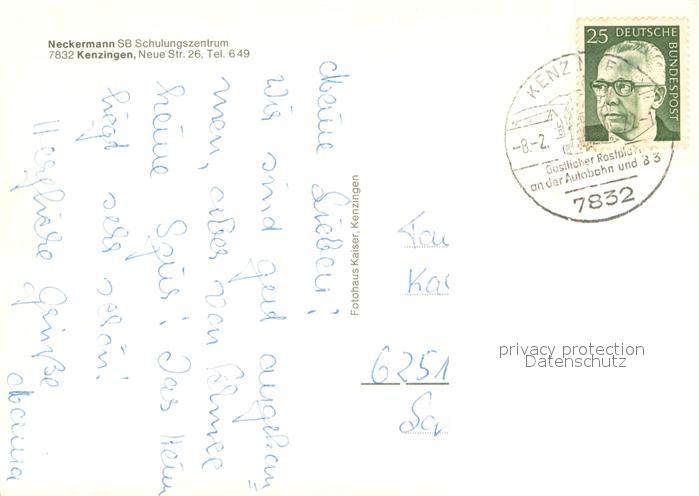 Neckermann SB Schulungszentrum
7832 Kenzingen, Neue Str. 26, Tel. 6 49
Meine Lieben!
Wir sind gut angekom
men, aber von Schnee
keine Spur! Das Heim
liegt sehr schön!
Herzliche Grüße
Mama
Fotohaus Kaiser, Kenzingen
25 DEUTSCHE
BUNDESPOST
KENZ
-8.-2.
Gastlicher Rastplatz
an der Autobahn und B 3
7832
Fam
Ka
6251
privacy protection
Datenschutz